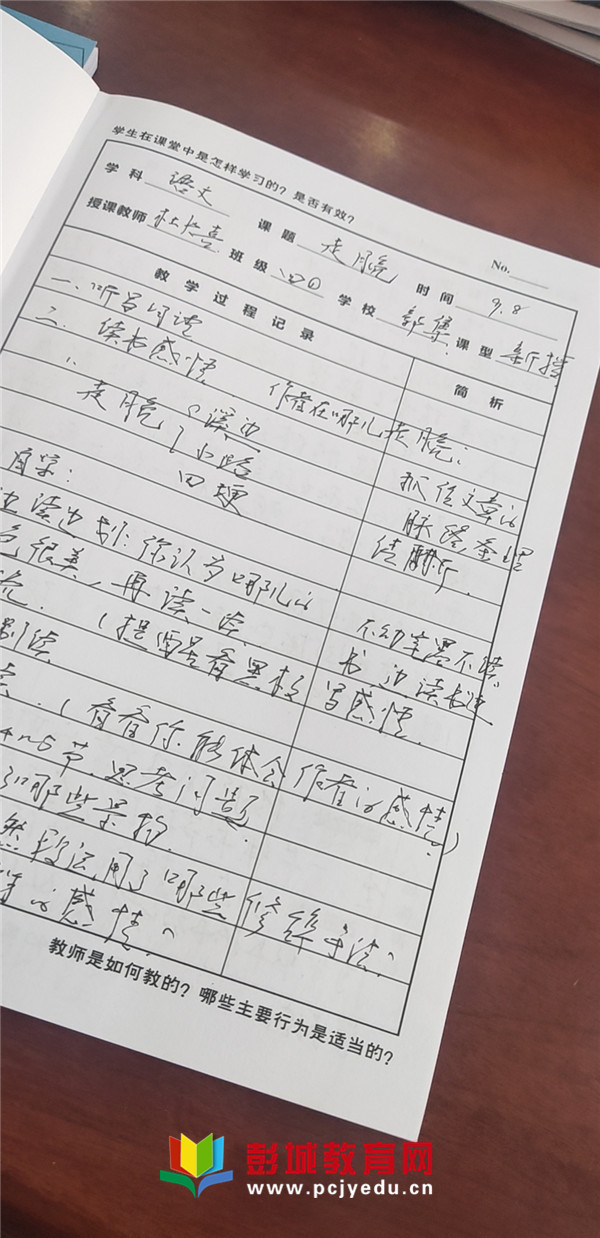 学生在课堂中是怎样学习的？是否有效？
No.
学科 语文 课题 走月亮 时间 9.8
授课教师 班级 四 学校 郭集 课型 新授
教学过程记录 简析
一、
二、读书感悟 作者在哪儿走月亮？
1. 走月亮 溪边
小路
田埂
抓住文章的
脉络
自学：
边读边划：你认为哪儿的
色很美，再读一读
不动笔墨不读
书 边读书边
写感悟
（看看你能体会作者的感情？）
4-5节，思考问题
哪些景物
用了哪些修辞手法？
的感情？
教师是如何教的？哪些主要行为是适当的？
彭城教育网
www.pcjyedu.cn